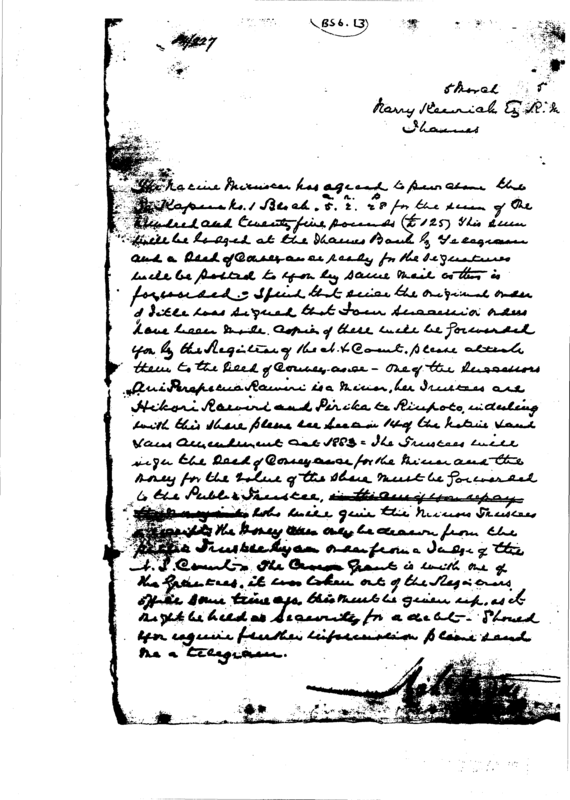 BS6. 13
/227
5 March 5
Harry Kenrick Esq R.M
Thames
The Native Minister has agreed to purchase the
Kapu No. 1 Block. 5. 2. 28 for the sum of One
Hundred and twenty five pounds (£125) This sum
will be lodged at the Thames Bank by Telegram
and a Deed of Conveyance ready for the Signatures
will be posted to you by same mail as this is
forwarded - I find that since the original order
of Title was signed that Four Succession orders
have been made. Copies of these will be forwarded
you by the Registrar of the N. L. Court, please attach
them to the Deed of Conveyance - One of the Successors
Raweri is a Minor, her Trustees are
Hikori Raweri and Pirika te Riupoto, in dealing
with this share please see Section 14 of the Native Land
Laws Amendment Act 1883 - The Trustees will
sign the Deed of Conveyance for the Minor and the
money for the value of the share must be forwarded
to the Public Trustee,
who will give the Minors Trustees
a receipt the Money can only be drawn from the
Public Trustee by an order from a Judge of the
N. L. Court - The Crown Grant is with one of
the Grantees, it was taken out of the Registrars
office some time ago, this must be given up, as it
might be held as security for a debt - Should
you require further information please send
me a telegram.